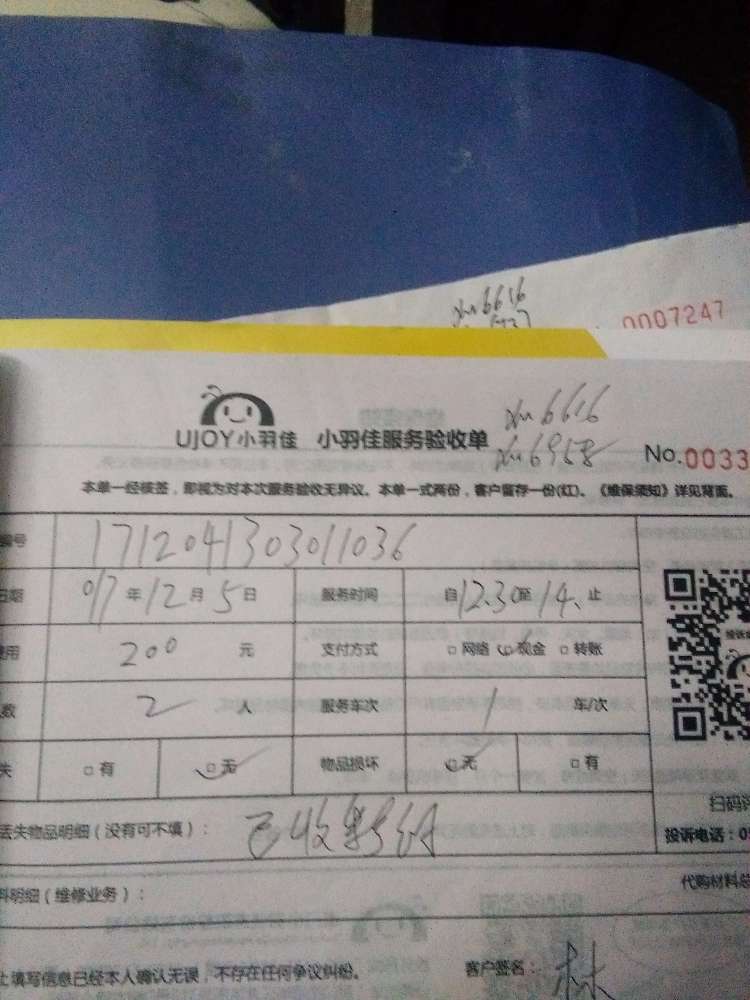 xhu6616
0007247
UJOY小羽佳 小羽佳服务验收单
xhu6616
xhu6958
No.0033
本单一经核签,即视为对本次服务验收无异议。本单一式两份,客户留存一份(红)。《维保须知》详见背面。
编号 1712041303011036
日期 017年12月5日 服务时间 自12.30至14.止
用 200 元 支付方式 □网络 □现金 □转账
数 2 人 服务车次 1 车/次
失 □有 □无 物品损坏 □无 □有
扫码
丢失物品明细(没有可不填): 已收
投诉电话:05
料明细(维修业务): 代购材料总
上填写信息已经本人确认无误,不存在任何争议纠纷。 客户签名: 林